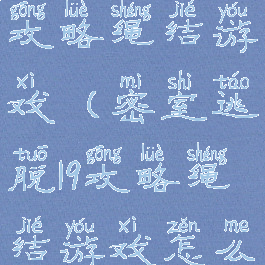 gōng lüè shéng jié yóu
攻略绳结游
xì ( mì shì táo
戏(密室逃
tuō gōng lüè shéng
脱19攻略绳
jié yóu xì zěn me
结游戏怎么